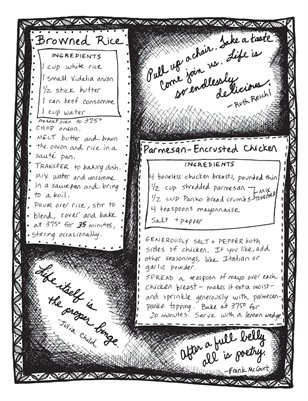 Browned Rice
INGREDIENTS
1 cup white rice
1 small Vidalia onion
1/2 stick butter
1 can beef consomme
1 cup water
Preheat oven to 375°
CHOP onion.
MELT butter and brown
the onion and rice in a
sauté pan.
TRANSFER to baking dish.
MIX water and consomme
in a saucepan and bring
to a boil.
POUR over rice, stir to
blend, cover and bake
at 375° for 35 minutes,
stirring occasionally.
Pull up a chair. Take a taste.
Come join us. Life is
so endlessly
delicious.
- Ruth Reichl
Parmesan-Encrusted Chicken
INGREDIENTS
4 boneless chicken breasts, pounded thin
1/2 cup shredded parmesan
1/2 cup Panko bread crumbs
mix together
4 teaspoons mayonnaise
Salt + pepper
GENEROUSLY SALT + PEPPER both
sides of chicken. If you like, add
other seasonings, like Italian or
garlic powder.
SPREAD a teaspoon of mayo over each
chicken breast - makes it extra moist -
and sprinkle generously with parmesan-
panko topping. Bake at 375° for
20 minutes. Serve with lemon wedge.
Life itself is
the proper binge.
Julia Child
After a full belly
all is poetry.
- Frank McCourt